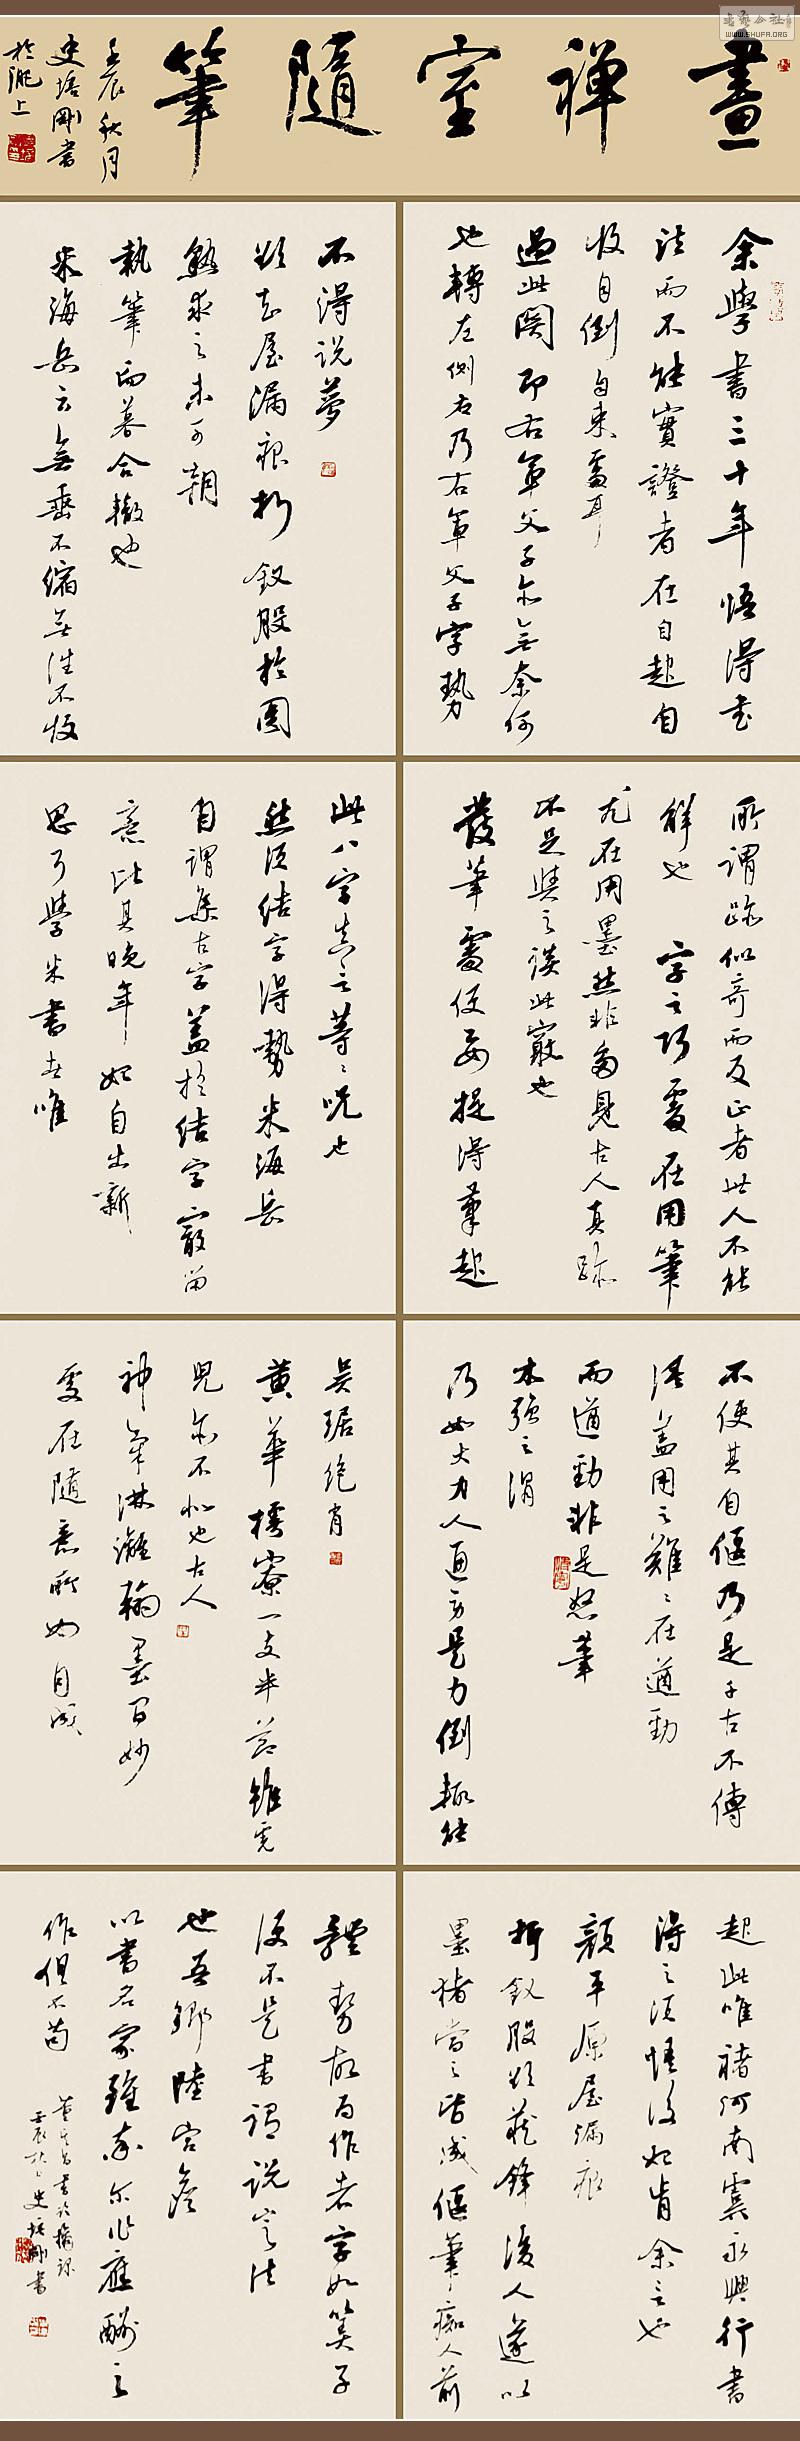 畫禪室隨筆
壬辰秋月
史培剛書
於隴上
余學書三十年悟得書
法而不能實證者在自起自
收自倒自束處耳
過此關即右軍父子亦無奈何
也轉左側右乃右軍父子字勢
所謂跡似奇而反正者世人不能
解也 字之巧處在用筆
尤在用墨然非多見古人真跡
不足與之談此竅也
發筆處便要提得筆起
不使其自偃乃是千古不傳
語蓋用之難〻在遒勁
而遒勁非是怒筆
木強之謂
乃如大力人通身是力倒輒能
起此唯褚河南虞永興行書
得之須悟後始肯余言也
顏平原屋漏痕
折釵股欲藏鋒後人遂以
墨猪當之皆成偃筆癡人前
不得説夢
欲知屋漏痕折釵股於圜
熟求之未可朝
執筆而暮合轍也
米海岳云無垂不縮無往不收
此八字真言等〻咒也
然須結字得勢米海岳
自謂集古字蓋於結字最留
意比其晚年始自出新
思耳學米書者唯
吳琚絕肖
黄華樗寮一支半節雖虎
兒亦不似也古人
神氣淋漓翰墨間妙
處在隨意所如自成
體勢故為作者字如筭子
便不是書謂說定法
也吾鄉陸宮詹
以書名家雖率尔作應酬之
作俱不苟
董其昌書論摘錄
壬辰秋月史培剛書
書藝公社
WWW.SHUFA.ORG